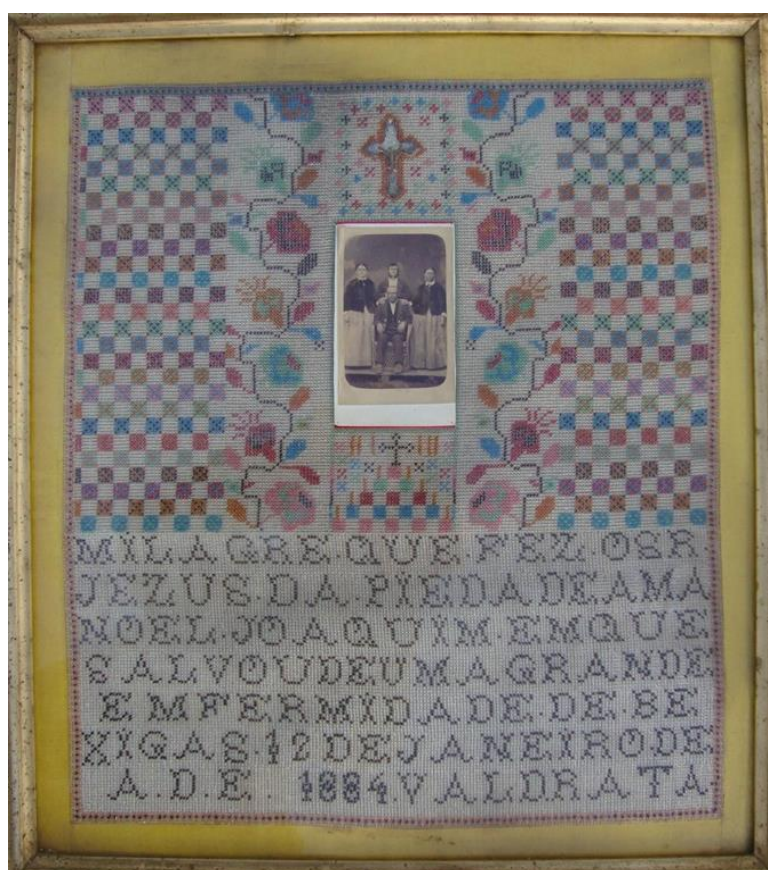 MILAGRE·QUE·FEZ·OSR
JEZUS·DA·PIEDADEAMA
NOEL·JOAQUIM·EMQUE
SALVOUDEUMAGRANDE
EMFERMIDADE·DE·BE
XIGAS·12DEJANEIRO·DE
A·D·E·1884·VALDRATA